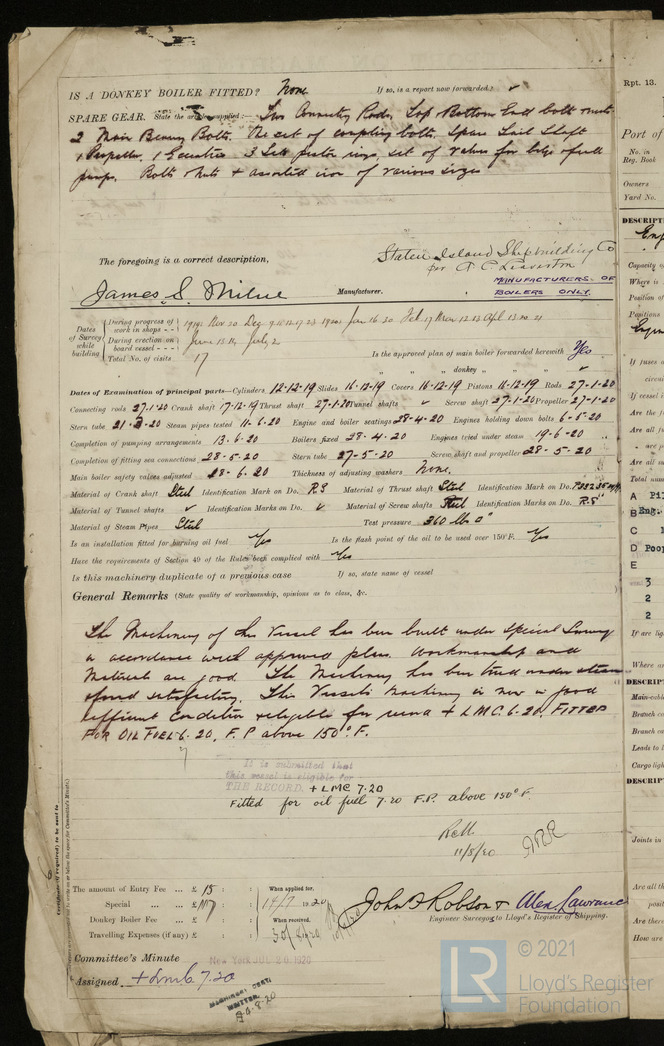 IS A DONKEY BOILER FITTED? None If so, is a report now forwarded? ✓
SPARE GEAR. State the articles supplied:— Two Connecting Rods, Top Bottom End bolts nuts
2 Main Bearing Bolts. One set of coupling bolts. Spare Tail Shaft
1 Propeller, 3 Sets piston rings, set of valves for bilge & feed
pumps. Bolts & Nuts + assorted iron of various sizes
The foregoing is a correct description,
Staten Island Shipbuilding Co
per
James S. Milne Manufacturer.
MANUFACTURERS OF
BOILERS ONLY.
Dates of Survey while building
During progress of work in shops - - 1919: Nov 20 Dec 9 1920: Jan 16 20 Feb 17 Mar 12 Apl 13 20 21
During erection on board vessel - - - June 15 July 2
Total No. of visits 17
Is the approved plan of main boiler forwarded herewith Yes
" " " donkey " " " ✓
Dates of Examination of principal parts—Cylinders 12-12-19 Slides 16-12-19 Covers 16-12-19 Pistons 16-12-19 Rods 27-1-20
Connecting rods 27-1-20 Crank shaft 17-12-19 Thrust shaft 27-1-20 Tunnel shafts ✓ Screw shaft 27-1-20 Propeller 27-1-20
Stern tube Steam pipes tested 11-6-20 Engine and boiler seatings 28-4-20 Engines holding down bolts 6-5-20
Completion of pumping arrangements 13-6-20 Boilers fixed 28-4-20 Engines tried under steam 19-6-20
Completion of fitting sea connections 28-5-20 Stern tube 27-5-20 Screw shaft and propeller 28-5-20
Main boiler safety valves adjusted 28-6-20 Thickness of adjusting washers None.
Material of Crank shaft Steel Identification Mark on Do. RS Material of Thrust shaft Steel Identification Mark on Do.
Material of Tunnel shafts ✓ Identification Marks on Do. ✓ Material of Screw shafts Steel Identification Marks on Do. RS
Material of Steam Pipes Steel Test pressure 360 lbs □"
Is an installation fitted for burning oil fuel Yes Is the flash point of the oil to be used over 150°F. Yes
Have the requirements of Section 49 of the Rules been complied with Yes
Is this machinery duplicate of a previous case If so, state name of vessel
General Remarks (State quality of workmanship, opinions as to class, &c.
The Machinery of this Vessel has been built under Special Survey
in accordance with approved plans. Workmanship and
Materials are good. The Machinery has been tried under steam
& found satisfactory. This Vessel's machinery is now in good
& efficient condition & eligible for record + LMC. 6-20. FITTED
FOR OIL FUEL 6-20, F.P above 150° F.
It is submitted that
this vessel is eligible for
THE RECORD. + LMC 7.20
Fitted for oil fuel 7.20 F.P. above 150° F.
11/8/20
The amount of Entry Fee ... £ 15 : :
Special ... ... £ 117 : :
Donkey Boiler Fee ... £ : :
Travelling Expenses (if any) £ : :
When applied for,
14/7 1920
When received,
John F Robson & Alex. Lawrance
Engineer Surveyors to Lloyd's Register of Shipping.
Committee's Minute New York JUL 20 1920
Assigned + LMC 7.20
MACHINERY CERT.
WRITTEN
Certificate (if required) to be sent to
Rpt. 13.
Port of
No. in
Reg. Book
Owners
Yard No.
DESCRIPT
Capacity o
Where is
Position of
Positions
If fuses a
If vessel i
Are the f
Are all f
Are all
Total num
A
B Eng.
C
D Poop
E
3
2
2
If are lig
Where ar
DESCRIP
Main-cabl
Branch c
Branch c
Leads to l
Cargo ligh
DESCRIP
Joints in
Are all th
posit
Are there
How are
© 2021
LR Lloyd's Register
Foundation